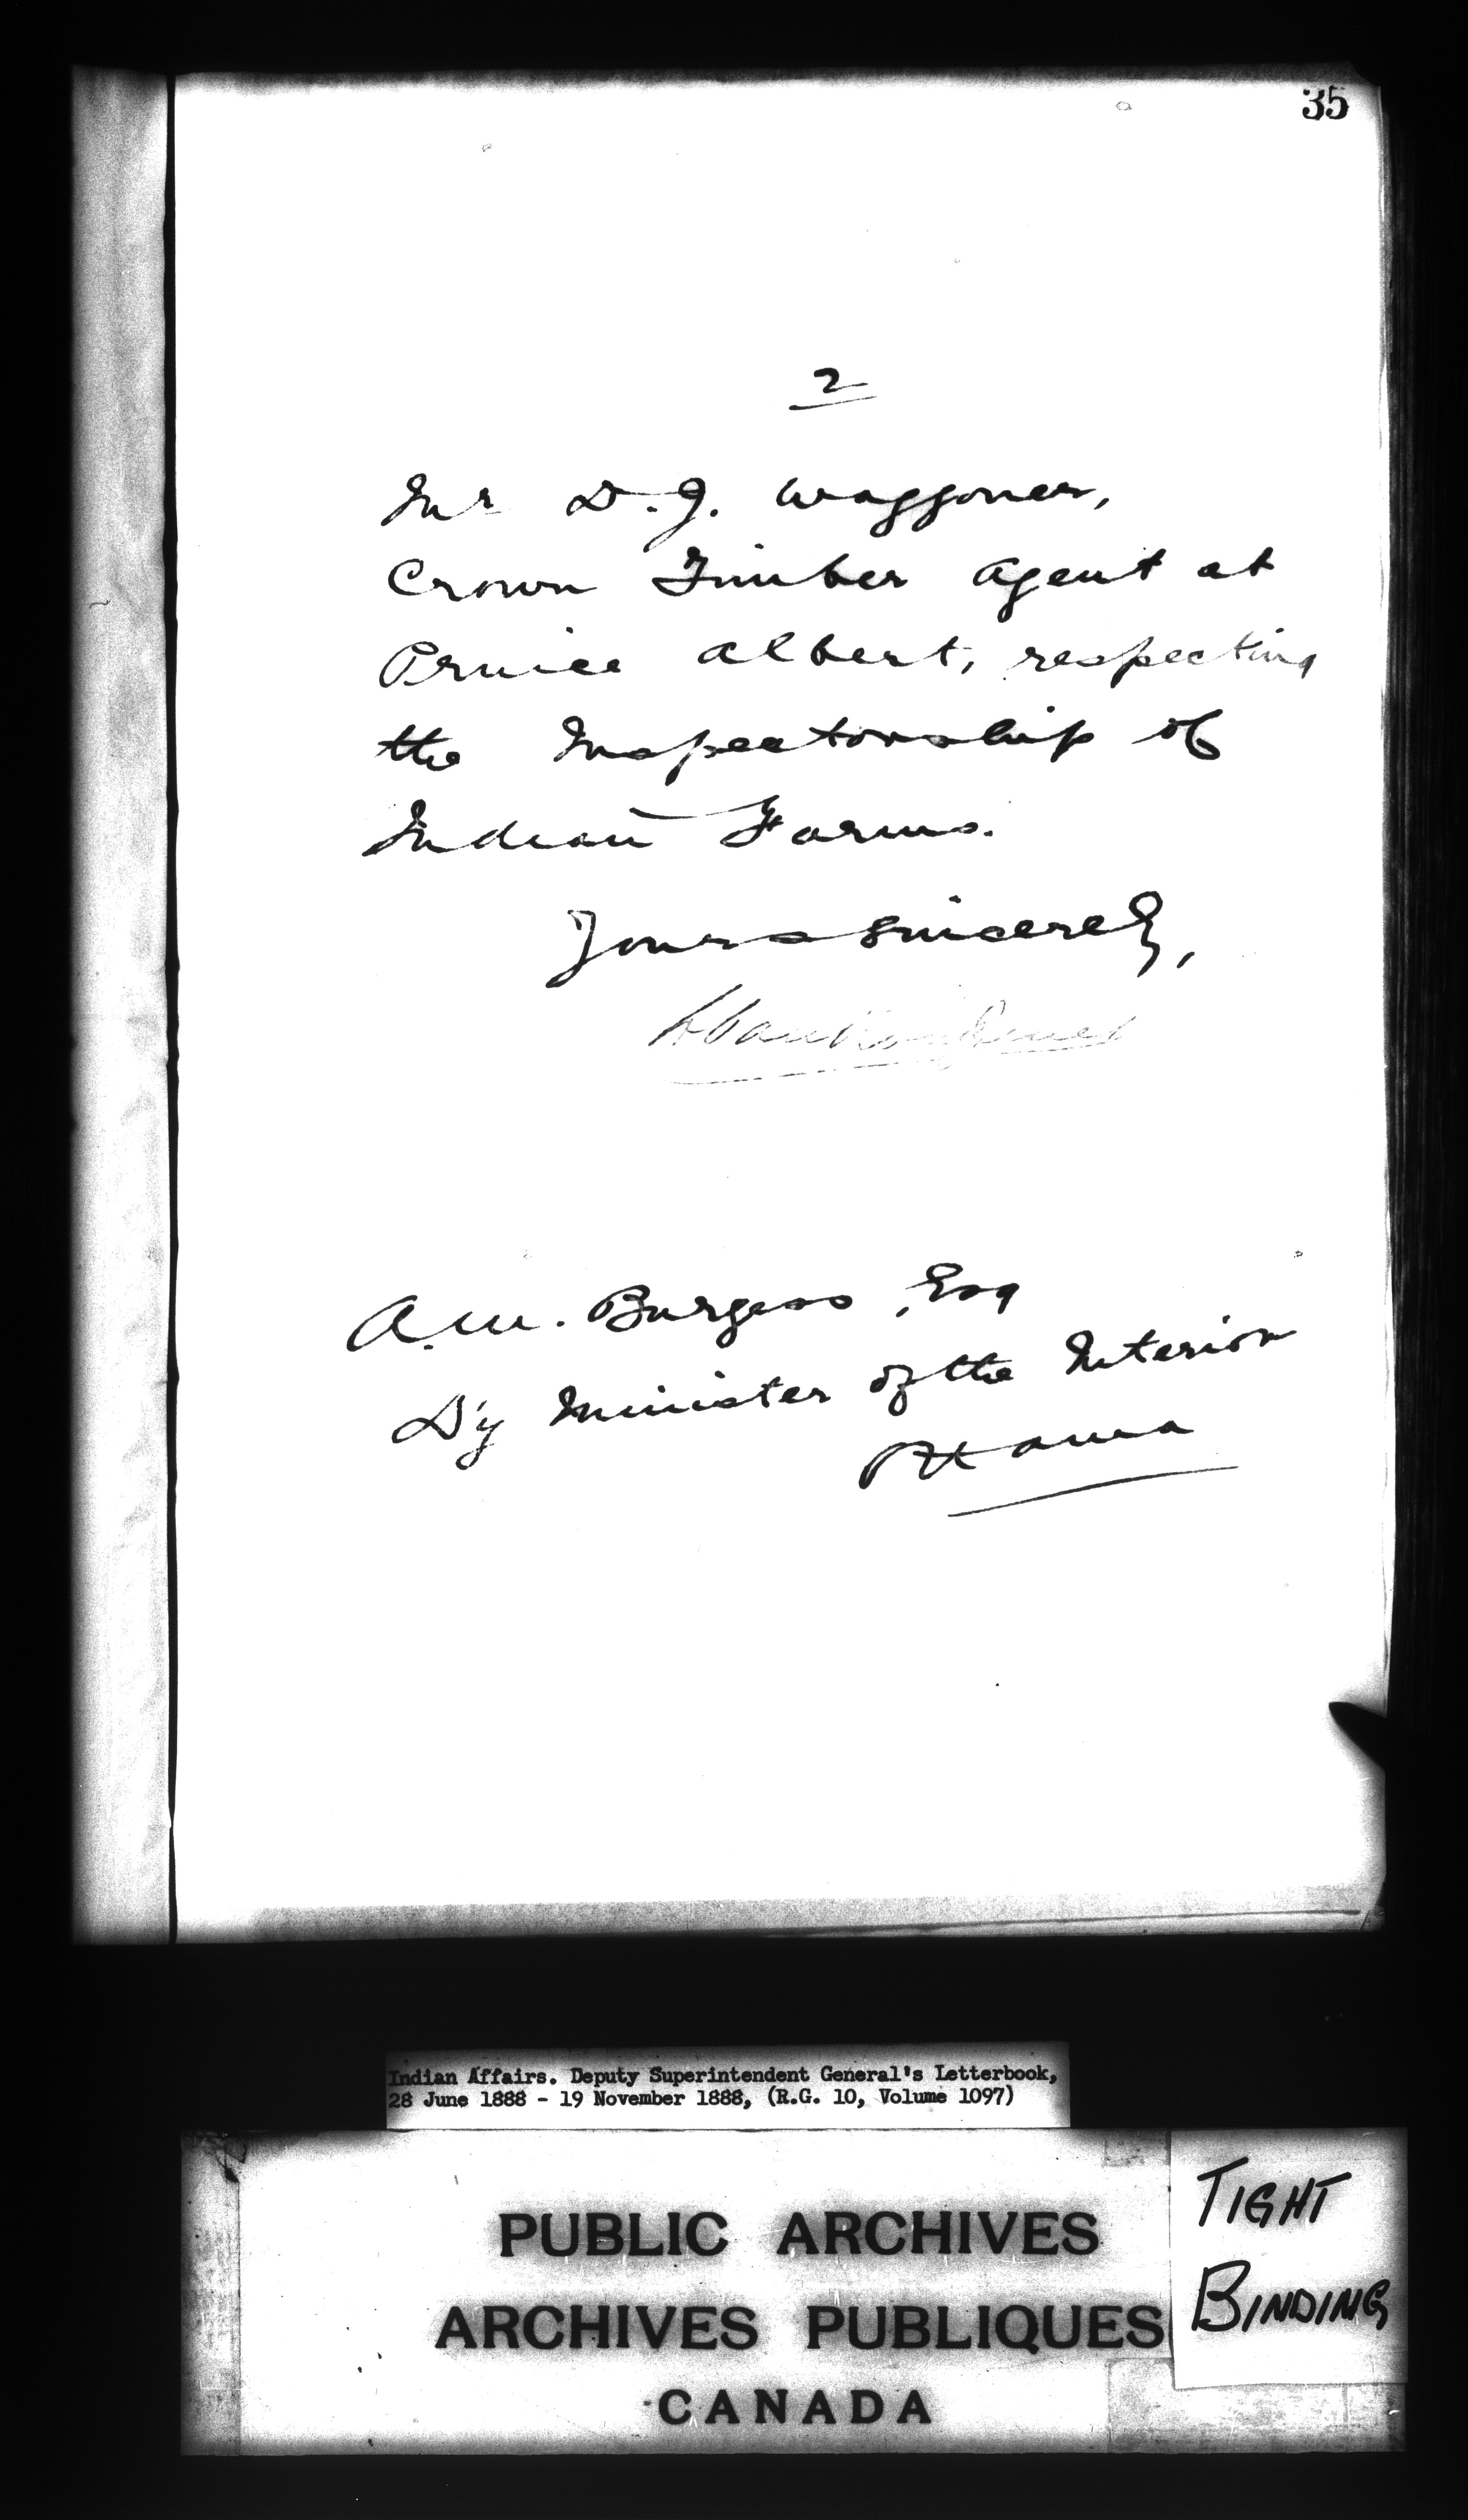 35
2
Mr D. J. Waggoner,
Crown Timber Agent at
Prince Albert, respecting
the Inspectorship of
Indian Farms.
Yours sincerely,
L. Vankoughnet
A. M. Burgess, Esq
D'y Minister of the Interior
Ottawa
Indian Affairs. Deputy Superintendent General's Letterbook,
28 June 1888 - 19 November 1888, (R.G. 10, Volume 1097)
PUBLIC ARCHIVES
ARCHIVES PUBLIQUES
CANADA
TIGHT
BINDING